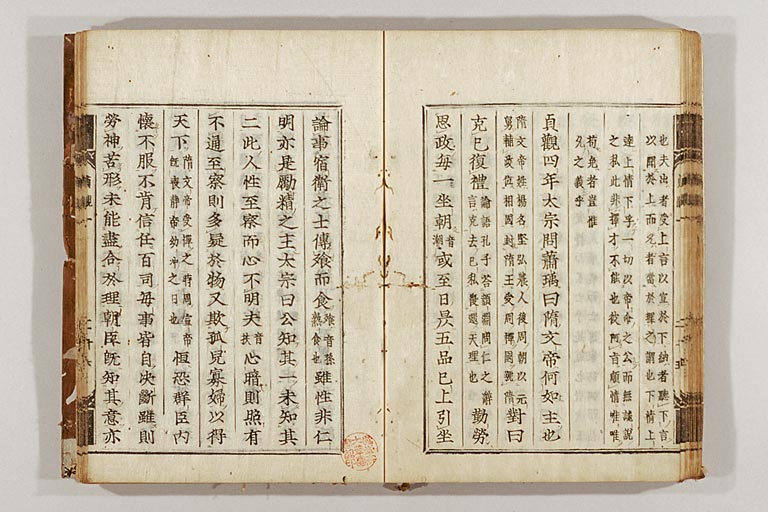 也夫出者受上言以宣於下納者聽下言
以聞於上而允者當於理之謂也下情上
達上情下孚一切以帝命之公而無謠說
之私此非擇才不能也從阿旨順情唯唯
苟免者豈惟
允之義乎
貞觀四年太宗問蕭瑀曰隋文帝何如主也
隋文帝姓楊名堅弘農人後周時以元舅輔政位相國封隋王受周禪國號隋對曰
克己復禮論語孔子答顏淵問仁之辭言克去己私復還天理也勤勞
思政每一坐朝音潮或至日昃五品已上引坐
論事宿衛之士傳飱而食飱音孫熟食也雖性非仁
明亦是勵精之主太宗曰公知其一未知其
二此人性至察而心不明夫音扶心暗則照有
不通至察則多疑於物又欺孤兒寡婦以得
天下隋文帝受禪之時周宣帝既喪靜帝幼冲之日也恒恐群臣內
懷不服不肯信任百司每事皆自決斷雖則
勞神苦形未能盡合於理朝臣既知其意亦